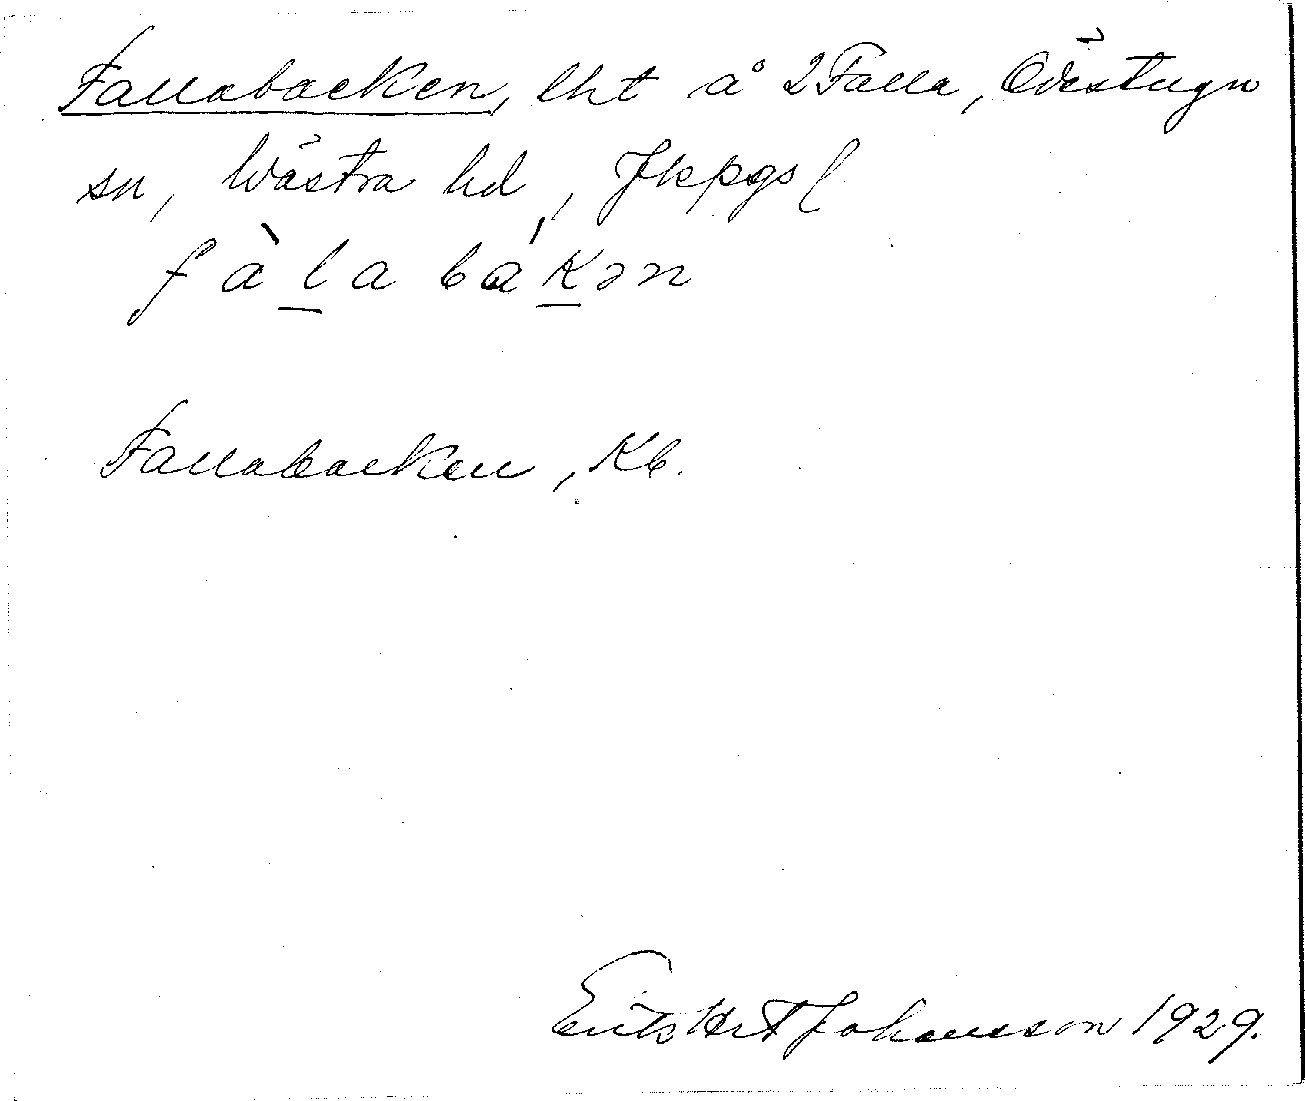 Fallabacken, lht å 2 Falla, Ödestugu
sn, Västra hd, Jkpgs l
fàlabákən
Fallabacken, Kb.
Johansson 1929.